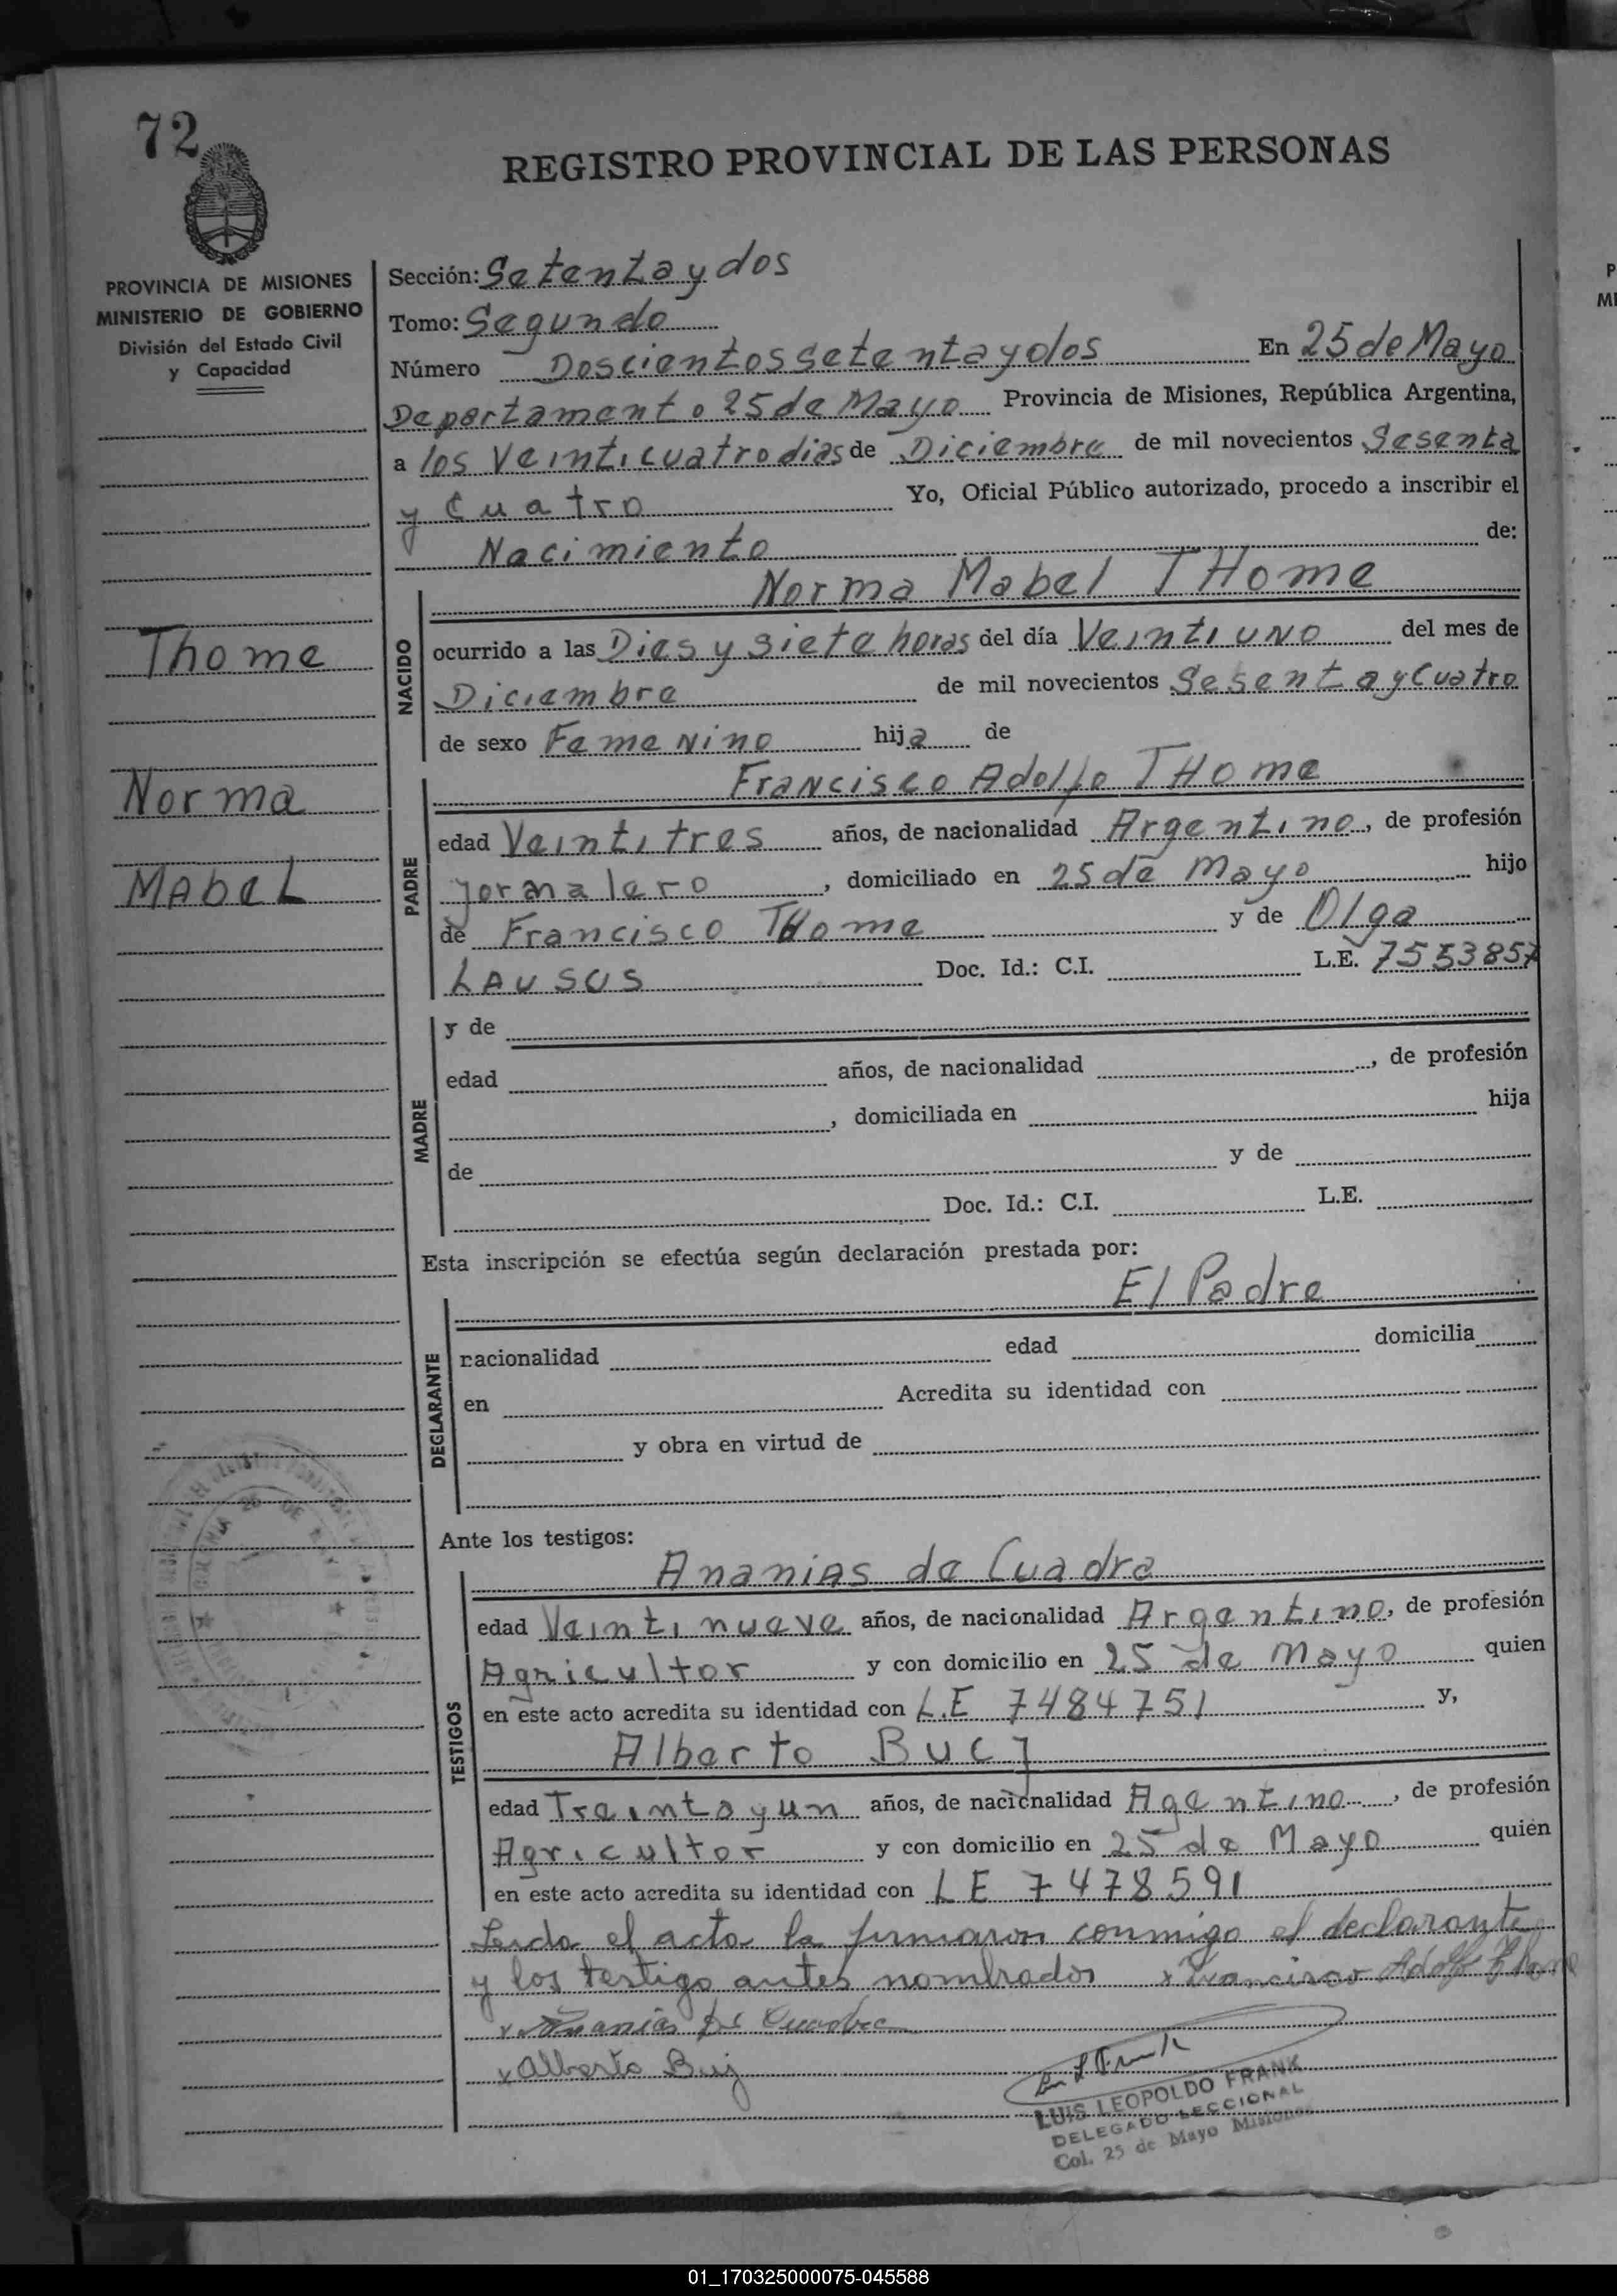 72
REGISTRO PROVINCIAL DE LAS PERSONAS
PROVINCIA DE MISIONES
MINISTERIO DE GOBIERNO
División del Estado Civil
y Capacidad
Thome
Norma
MABEL
Sección: Setenta y dos
Tomo: Segundo
Número Doscientos Setenta y dos En 25 de Mayo
Departamento 25 de Mayo Provincia de Misiones, República Argentina,
a los Veinticuatro dias de Diciembre de mil novecientos Sesenta
y Cuatro Yo, Oficial Público autorizado, procedo a inscribir el
Nacimiento de:
Norma Mabel THome
NACIDO
ocurrido a las Dies y siete horas del día Veintiuno del mes de
Diciembre de mil novecientos Sesenta y Cuatro
de sexo Femenino hija de
Francisco Adolfo THome
PADRE
edad Veintitres años, de nacionalidad Argentino, de profesión
jornalero, domiciliado en 25 de Mayo hijo
de Francisco THome y de Olga
LAUSUS Doc. Id.: C.I. L.E. 7553857
MADRE
y de
edad años, de nacionalidad , de profesión
, domiciliada en hija
de y de
Doc. Id.: C.I. L.E.
Esta inscripción se efectúa según declaración prestada por:
El Padre
DECLARANTE
nacionalidad edad domicilia
en Acredita su identidad con
y obra en virtud de
Ante los testigos:
Ananias de Cuadra
TESTIGOS
edad Veintinueve años, de nacionalidad Argentino, de profesión
Agricultor y con domicilio en 25 de Mayo quien
en este acto acredita su identidad con L.E 7484751 y,
Alberto Bucj
edad Treinta y un años, de nacionalidad Agentino, de profesión
Agricultor y con domicilio en 25 de Mayo quien
en este acto acredita su identidad con LE 7478591
Leida el acta la firmaron conmigo el declarante
y los testigo antes nombrados x Francisco Adolfo Thome
x Ananias de Cuadra
x Alberto Buij
LUIS LEOPOLDO FRANK
DELEGADO SECCIONAL
Col. 25 de Mayo Misiones
01_170325000075-045588